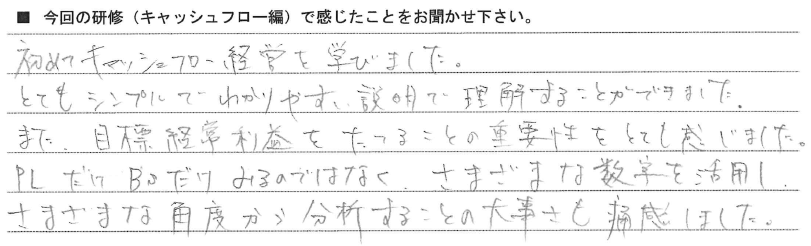 ■ 今回の研修（キャッシュフロー編）で感じたことをお聞かせ下さい。
初めてキャッシュフロー経営を学びました。
とてもシンプルでわかりやすい説明で理解することができました。
また、目標経常利益をたてることの重要性をとても感じました。
PLだけBSだけみるのではなく、さまざまな数字を活用し、
さまざまな角度から分析することの大事さも痛感しました。